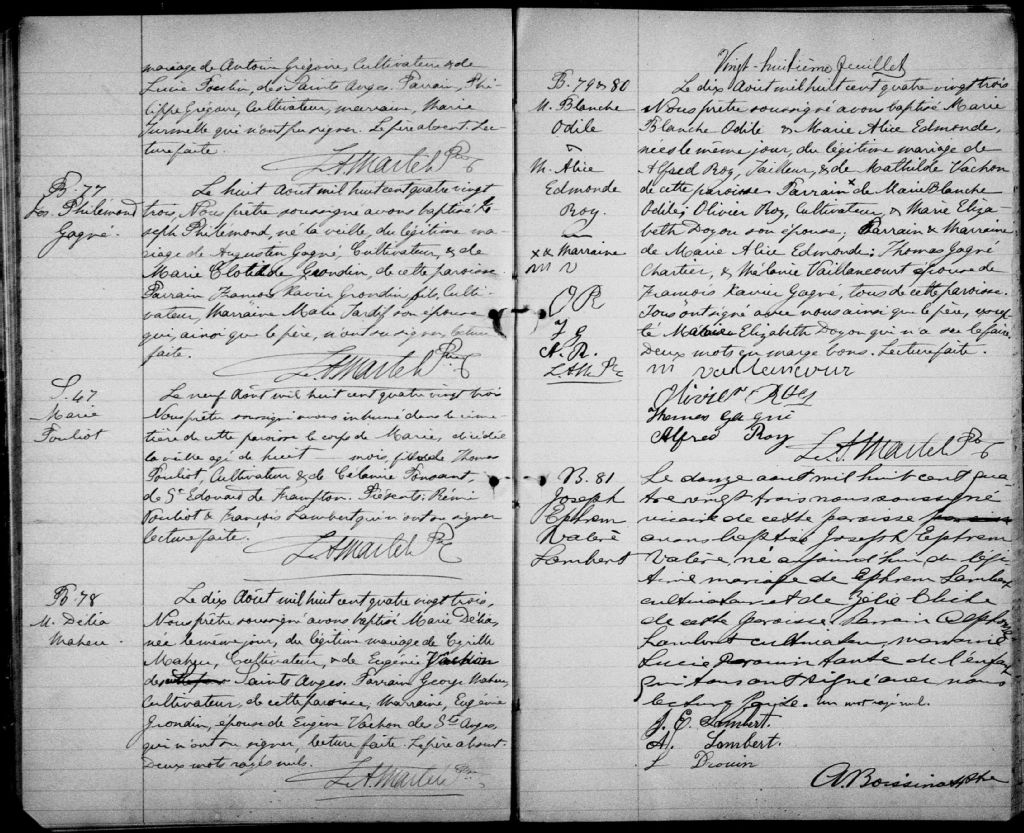 mariage de Antoine Grégoire, Cultivateur & de
Lucie des Saints Anges. Parrain, Phi-
lippe Grégoire, Cultivateur, marraine, Marie
Turmelle qui n'ont pu signer. Le père absent. Lec-
ture faite.
L. A. Martel Ptre
B. 77
Jos. Philemond
Gagné.
Le huit Août mil huit cent quatre vingt
trois, Nous prêtre soussigné avons baptisé Jo-
seph Philemond, né la veille, du légitime ma-
riage de Augustin Gagné, Cultivateur, & de
Marie Clotilde Grondin, de cette paroisse.
Parrain François Xavier Grondin fils, Culti-
vateur, Marraine Marie Tardif son épouse
qui, ainsi que le père, n'ont su signer, lecture
faite.
L. A. Martel Ptre
S. 47
Marie
Pouliot
Le neuf Août mil huit cent quatre vingt trois
Nous prêtre soussigné avons inhumé dans le cime-
tière de cette paroisse le corps de Marie, décédée
la veille agé de huit mois, fille de Thomas
Pouliot, Cultivateur & de Célanire
de St Edouard de Frampton. Présents: Rémi
Pouliot & François Lambert qui n'ont su signer
lecture faite.
L. A. Martel Ptr
B. 78
M. Délia
Maheu
Le dix Août mil huit cent quatre vingt trois,
Nous prêtre soussigné avons baptisé Marie Délia,
née le même jour, du légitime mariage de Cyrille
Maheu, Cultivateur, & de Eugénie Vachon
des Saints Anges. Parrain George Maheu,
Cultivateur, de cette paroisse, Marraine, Eugénie
Grondin, épouse de Eugène Vachon de Sts Anges,
qui n'ont su signer, lecture faite. Le père absent.
Deux mots rayés nuls.
L. A. Martel Ptre
Vingt-huitième feuillet
B. 79 & 80
M. Blanche
Odile
&
M. Alice
Edmonde
Roy.
x & Marraine
m v
O R
T G
A. R.
L. A. M. Ptr
Le dix Août mil huit cent quatre vingt trois
Nous prêtre soussigné avons baptisé Marie
Blanche Odile & Marie Alice Edmonde,
nées le même jour, du légitime mariage de
Alfred Roy, Tailleur, & de Mathilde Vachon
de cette paroisse Parrain x de Marie Blanche
Odile; Olivier Roy, Cultivateur, & Marie Eliza-
beth Doyon son épouse; Parrain & Marraine
de Marie Alice Edmonde: Thomas Gagné
Chartier, & Mélanie Vaillancourt épouse de
François Xavier Gagné, tous de cette paroisse.
Tous ont signé avec nous ainsi que le père, excep-
té Marie Elizabeth Doyon qui n'a su le faire.
Deux mots en marge bons. Lecture faite.
m vaillencour
Olivier Roy
Thomas gagné
Alfred Roy
L. A. Martel Ptr
B. 81
Joseph
Ephrem
Valère
Lambert
Le douze aout mil huit cent qua-
tre vingt trois nous soussigné
vicaire de cette paroisse
avons baptisé Joseph Ephrem
Valère, né aujourd'hui du légi-
time mariage de Ephrem Lambert
cultivateur et de Zélie
de cette paroisse Parrain Alphonse
Lambert cultivateur, marraine
Lucie Drouin tante de l'enfant
qui tous ont signé avec nous
lecture faite. Un mot rayé nul.
J. E. Lambert.
A. Lambert.
L Drouin
A. Boissinault Ptre